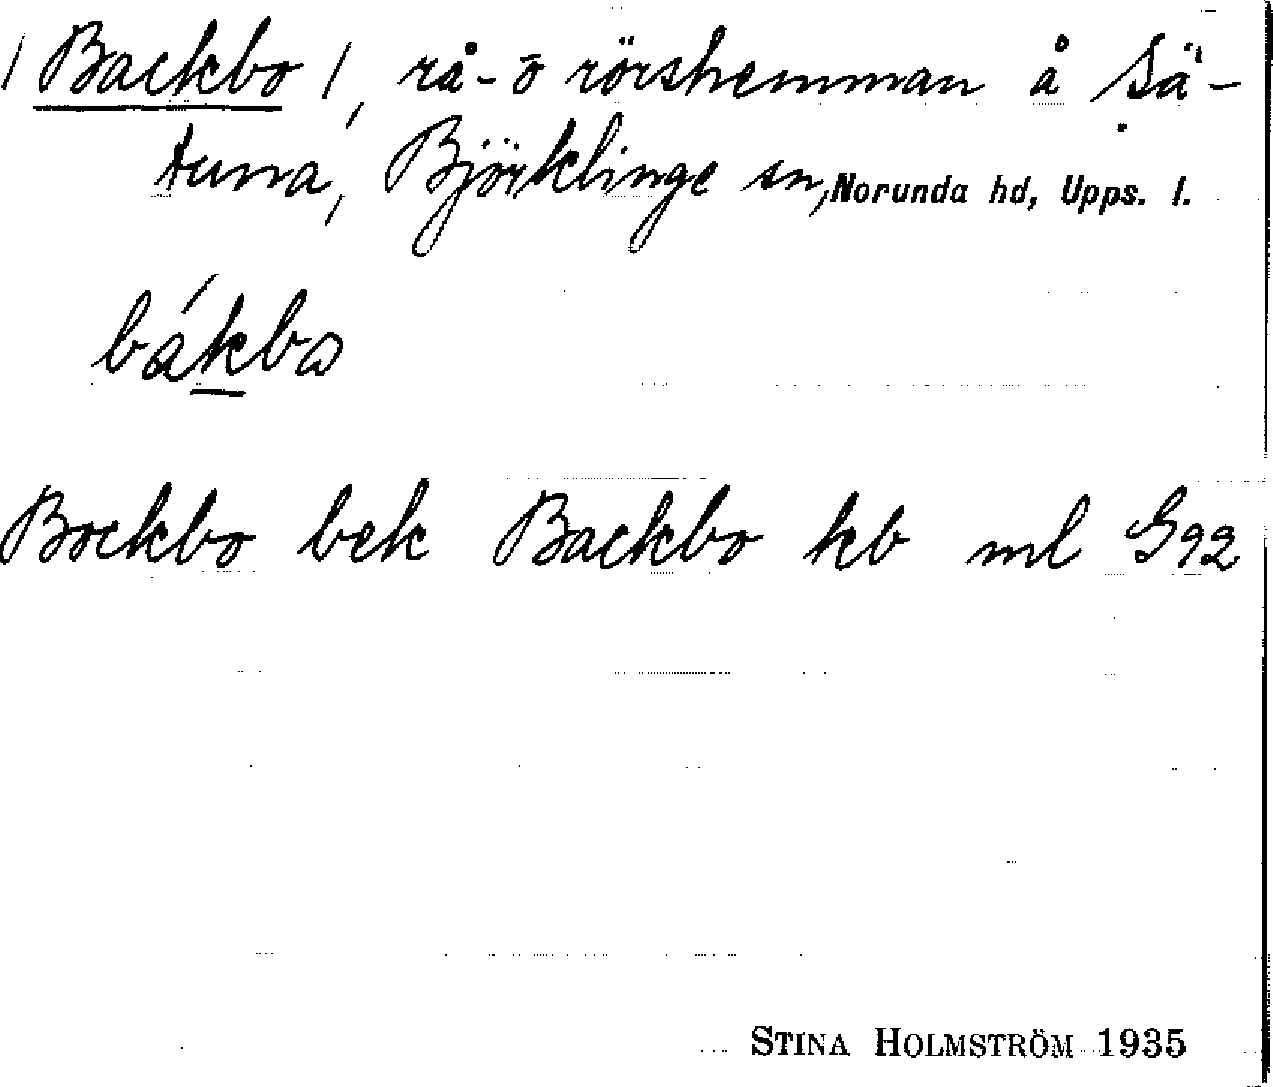 / Backbo /, rå- o rörshemman å Sä-
tuna, Björklinge sn, Norunda hd, Upps. l.
bákbo
Bockbo bek Backbo kb ml G92
STINA HOLMSTRÖM 1935